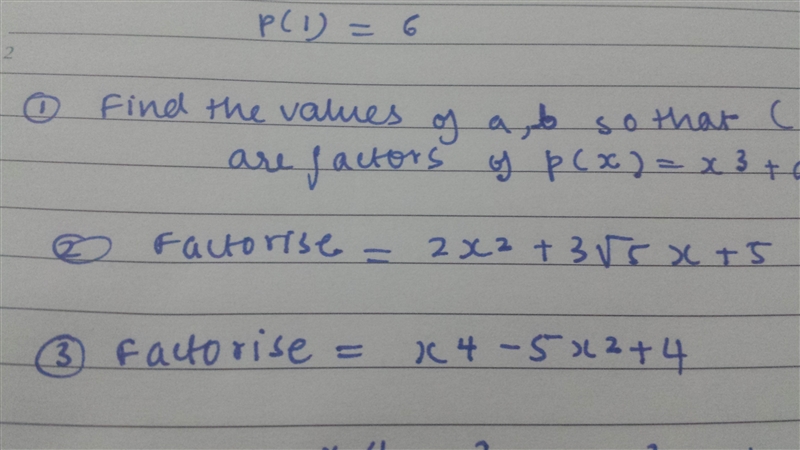 P(1) = 6
2
① Find the values of a, b so that (
are factors of p(x) = x³ +
② Factorise = 2x² + 3√5 x + 5
③ Factorise = x⁴ - 5x² + 4